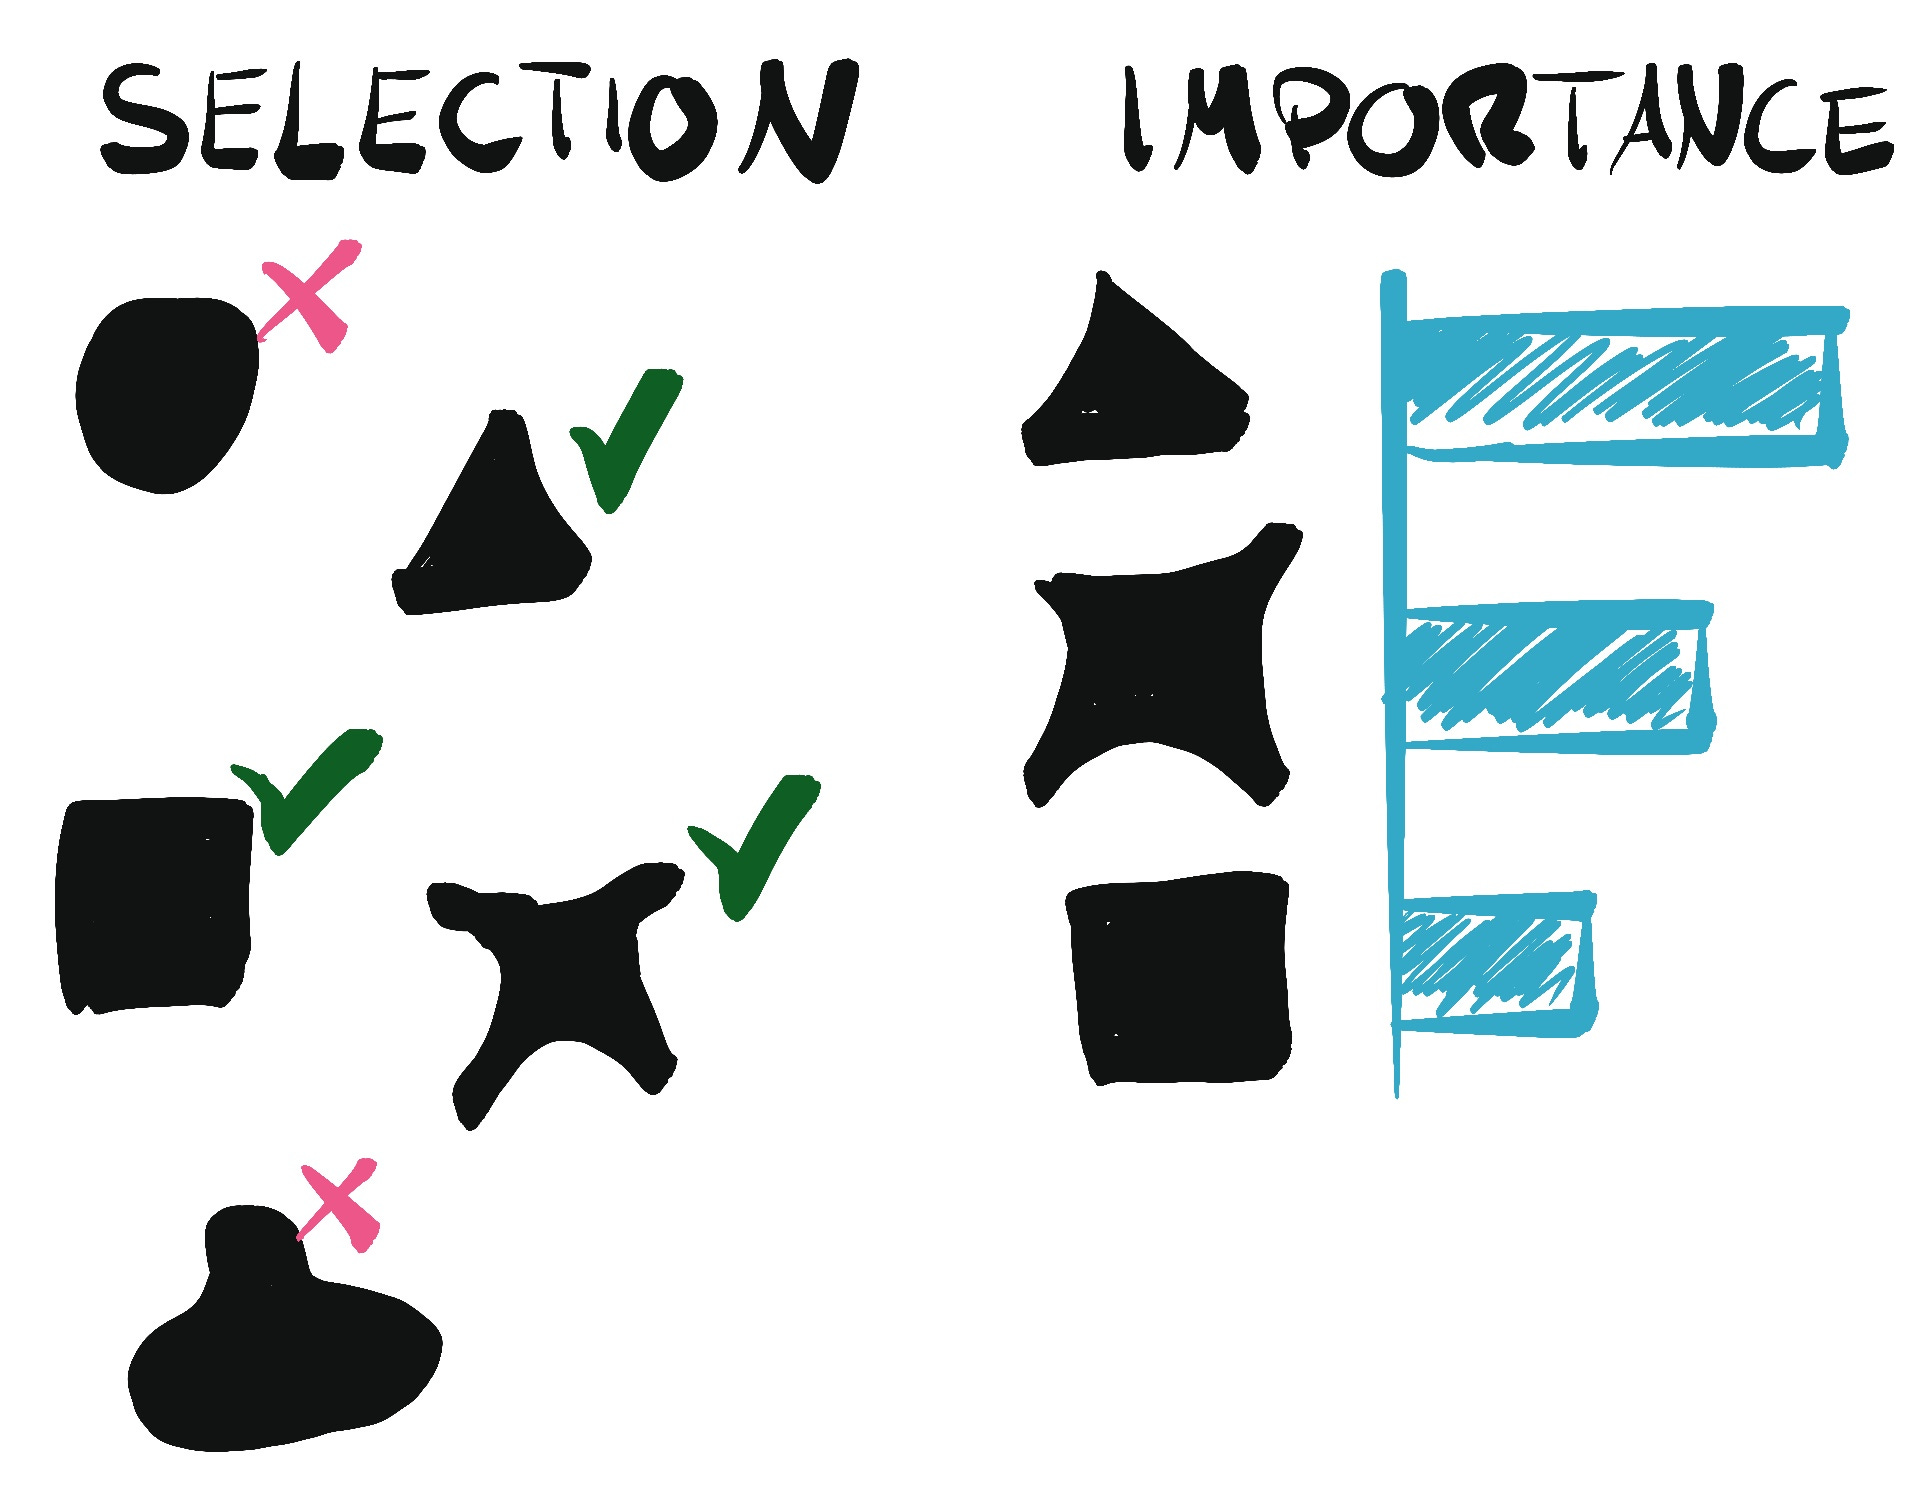 SELECTION
IMPORTANCE